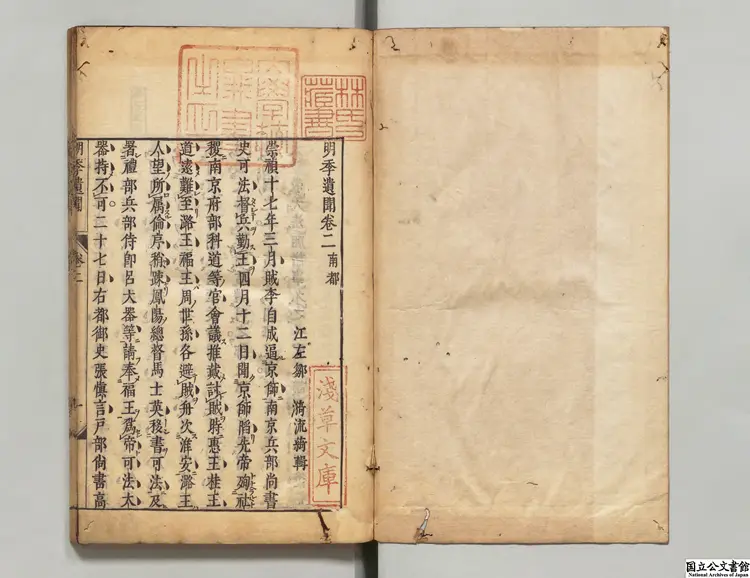 林氏藏書
明季遺聞卷二 南都
江左鄒 漪流綺輯
淺草文庫
崇禎十七年三月賊李自成逼京師南京兵部尚書
史可法督兵勤王四月十二日聞京師陷先帝殉社
稷南京府部科道等官會議推戴討賊時惠王桂王
道遠難至潞王福王周世孫各避賊舟次淮安潞王
人望所屬倫序稍疎鳳陽總督馬士英移書可法及
署禮部兵部侍郎呂大器等請奉福王爲帝可法大
器持不可二十七日右都御史張慎言戶部尚書高
明季遺聞 卷二 一
国立公文書館
National Archives of Japan